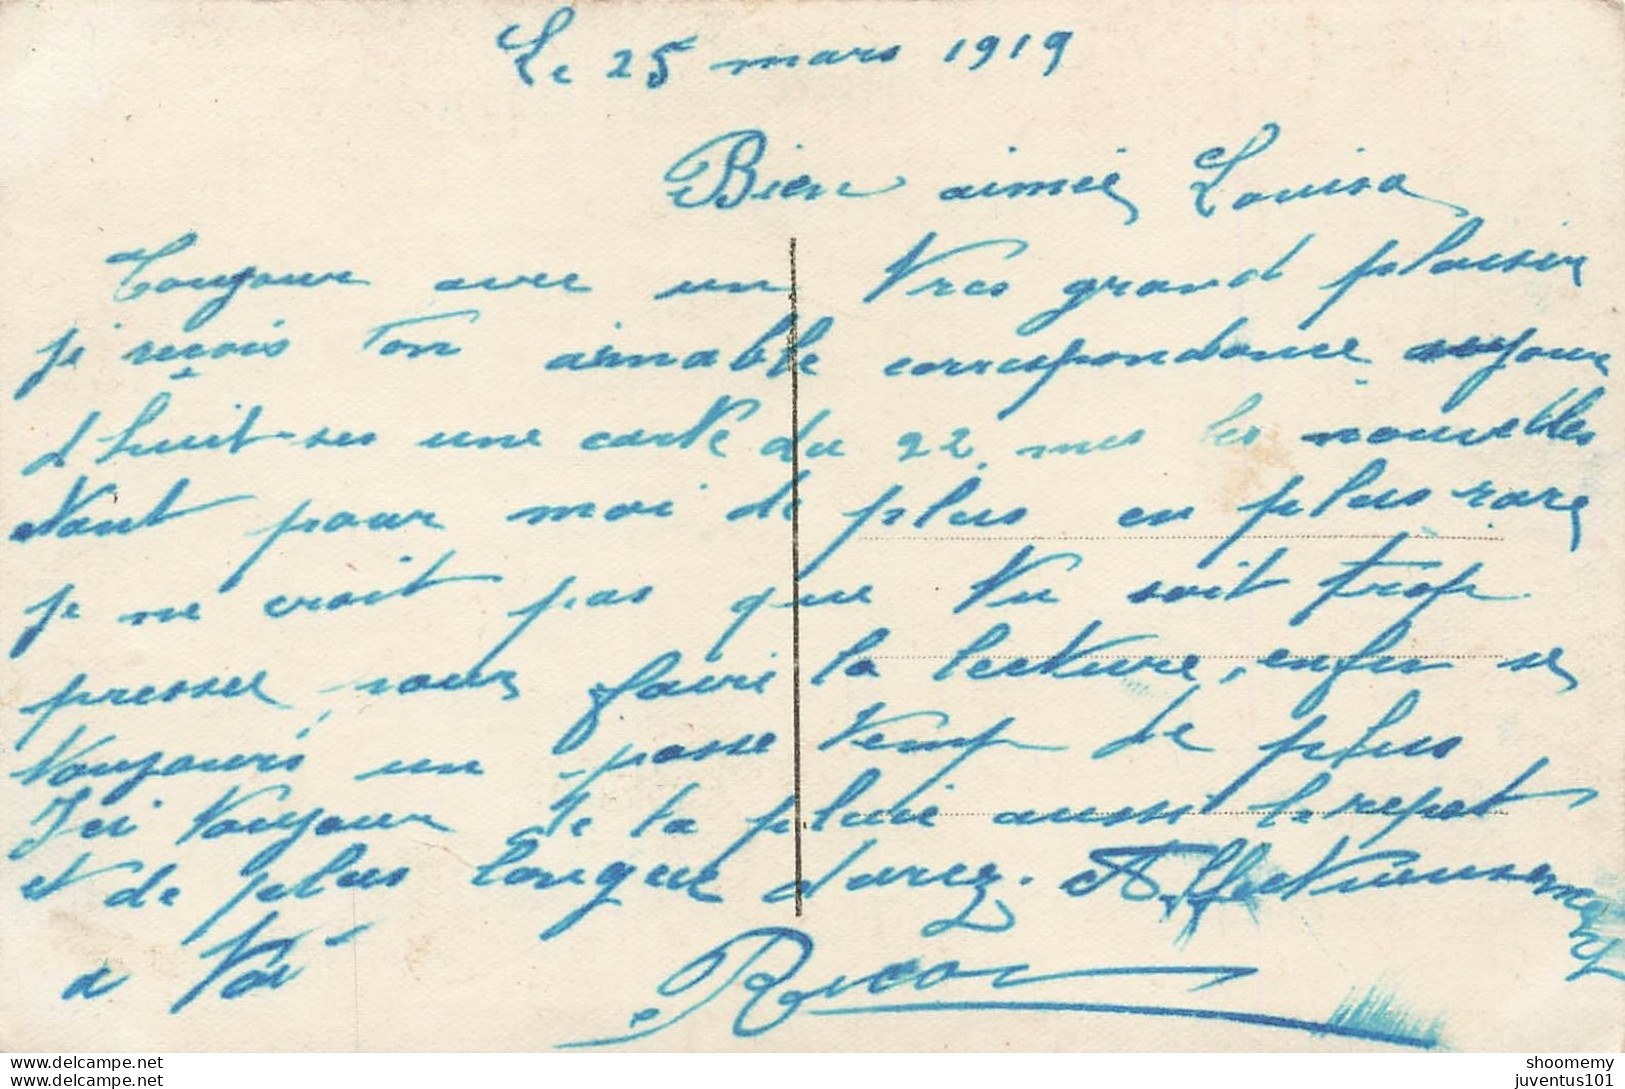 Le 25 mars 1919
Bien aimée Louisa
Toujour avec un tres grand plaisir
je reçois ton aimable correspondance aujour
d'huit une carte du 22 mes les nouvelles
étant pour moi de plus en plus rare
je ne croit pas que tu soit trop
presser pour faire la lecture, enfin se
toujours un passe temp de plus
Ici toujour de la pluie aussi le repot
et de plus longue durez. Affectueusement
a toi
shoomemy
juventus101